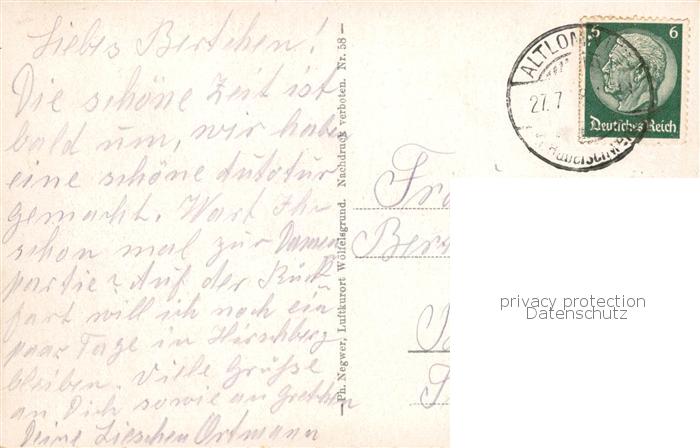 Liebes Bertchen!
Die schöne Zeit ist
bald um, wir haben
eine schöne Autotur
gemacht. Wart Ihr
schon mal zur Damen
partie? Auf der Rück
fart will ich noch ein
paar Tage in Hirschberg
bleiben. Viele Grüsse
an Dich sowie an Gretchen
Deine Lieschen Ortmann
Ph. Negwer, Luftkurort Wölfelsgrund. Nachdruck verboten. Nr. 58
ALTLOM
27.7
Habelschw
6 6
Deutsches Reich
Fr
Ber
privacy protection
Datenschutz